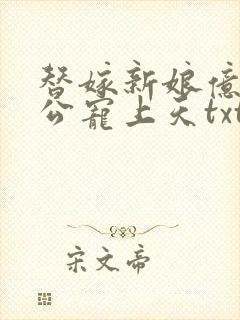 替嫁新娘亿
公宠上天txt
宋文帝